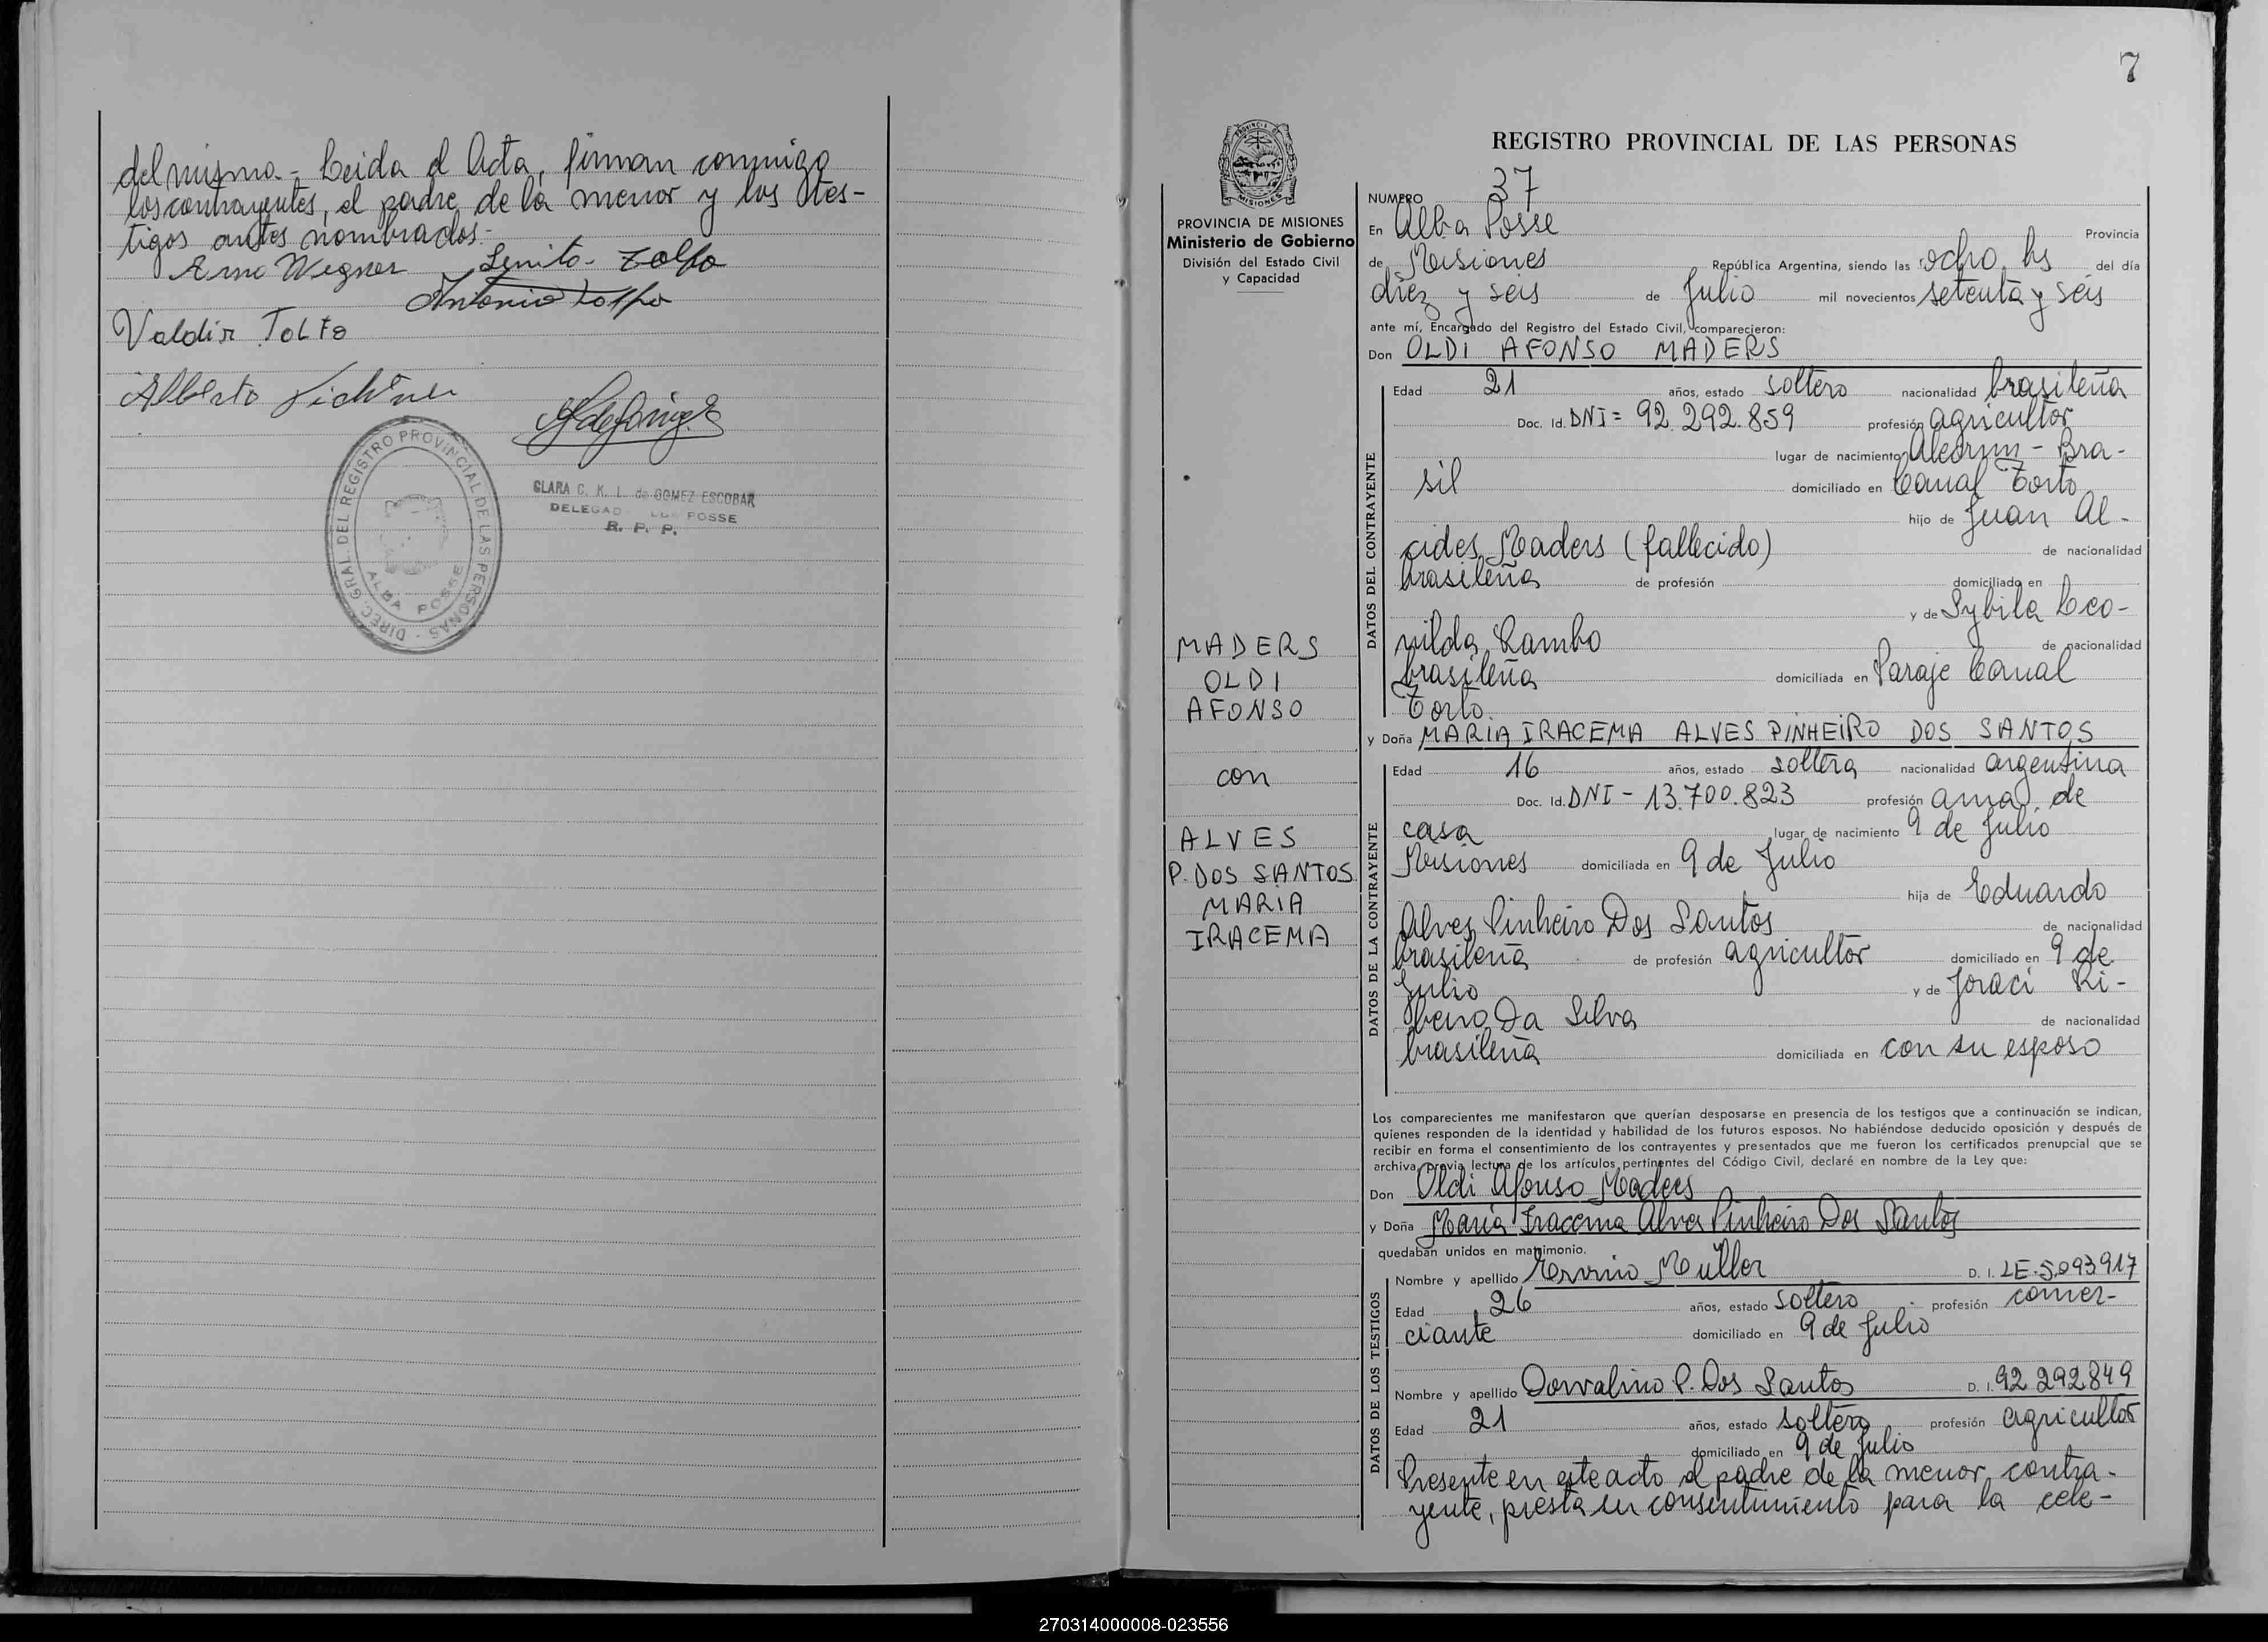 del mismo.- Leida el Acta, firman conmigo
los contrayentes, el padre de la menor y los tes-
tigos antes nombrados.-
Erno Wegner Tolfo
Antonio Tolfo
Valdir Tolfo
Alberto
DIREC. GRAL. DEL REGISTRO PROVINCIAL DE LAS PERSONAS
ALBA POSSE
CLARA C. K. L. de GOMEZ ESCOBAR
DELEGAD POSSE
R. P. P.
7
REGISTRO PROVINCIAL DE LAS PERSONAS
PROVINCIA DE MISIONES
Ministerio de Gobierno
División del Estado Civil
y Capacidad
MADERS
OLDI
AFONSO
con
ALVES
P. DOS SANTOS
MARIA
IRACEMA
NUMERO 37
En Alba Posse Provincia
de Misiones República Argentina, siendo las ocho hs del día
diez y seis de Julio mil novecientos setenta y seis
ante mí, Encargado del Registro del Estado Civil, comparecieron:
Don OLDI AFONSO MADERS
DATOS DEL CONTRAYENTE
Edad 21 años, estado soltero nacionalidad brasileña
Doc. Id. DNI = 92.292.859 profesión agricultor
lugar de nacimiento Alecrim - Bra-
sil domiciliado en Canal Torto
hijo de Juan Al-
cides Maders (fallecido) de nacionalidad
brasileña de profesión domiciliado en
y de Sybila Leo-
nilda Rambo de nacionalidad
brasileña domiciliada en Paraje Canal
Torto.
y Doña MARIA IRACEMA ALVES PINHEIRO DOS SANTOS
DATOS DE LA CONTRAYENTE
Edad 16 años, estado soltera nacionalidad argentina
Doc. Id. DNI - 13.700.823 profesión ama de
casa lugar de nacimiento 9 de Julio
Misiones domiciliada en 9 de Julio
hija de Eduardo
Alves Pinheiro Dos Santos de nacionalidad
brasileña de profesión agricultor domiciliado en 9 de
Julio y de Joraci Ri-
beiro Da Silva de nacionalidad
brasileña domiciliada en con su esposo
Los comparecientes me manifestaron que querían desposarse en presencia de los testigos que a continuación se indican,
quienes responden de la identidad y habilidad de los futuros esposos. No habiéndose deducido oposición y después de
recibir en forma el consentimiento de los contrayentes y presentados que me fueron los certificados prenupcial que se
archiva, previa lectura de los artículos pertinentes del Código Civil, declaré en nombre de la Ley que:
Don Oldi Afonso Maders
y Doña Maria Iracema Alves Pinheiro Dos Santos
quedaban unidos en matrimonio.
DATOS DE LOS TESTIGOS
Nombre y apellido Ervino Muller D. I. LE.5.093917
Edad 26 años, estado soltero profesión comer-
ciante domiciliado en 9 de Julio
Nombre y apellido Dorvalino P. Dos Santos D. I. 92.292849
Edad 21 años, estado soltero profesión agricultor
domiciliado en 9 de Julio
Presente en este acto el padre de la menor contra-
yente, presta su consentimiento para la cele-
270314000008-023556